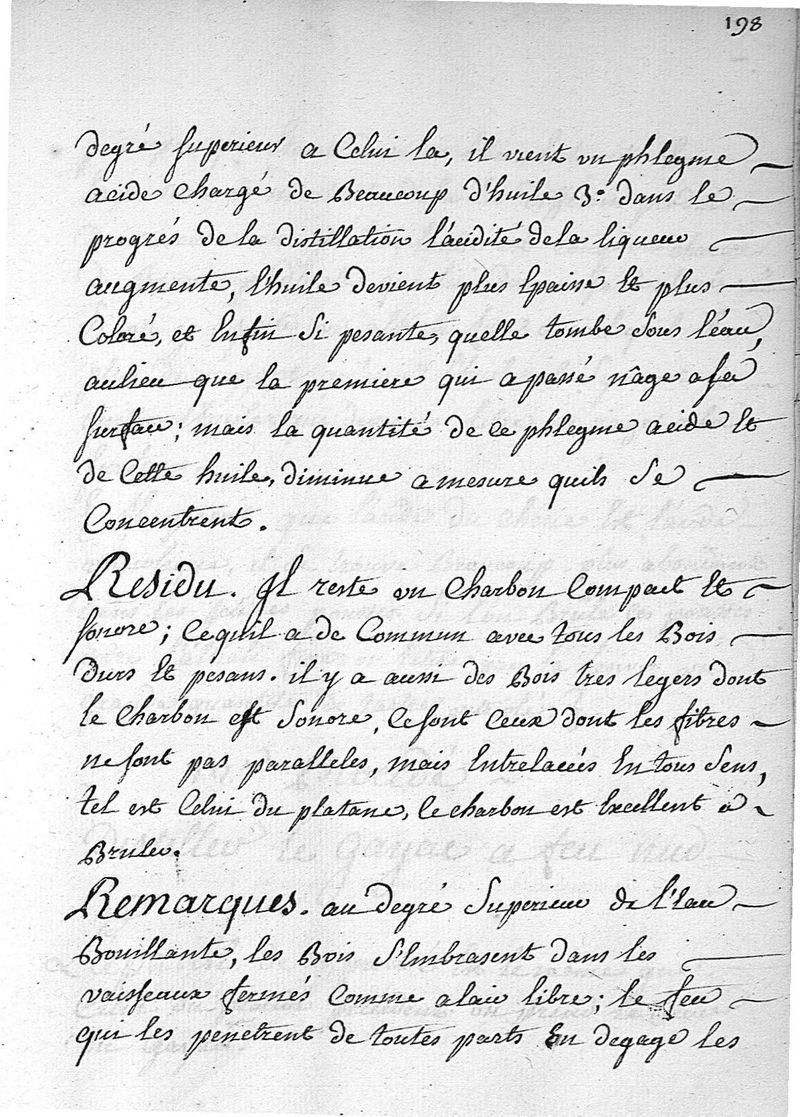 198
degré superieur a Celui la, il vient un phlegme
acide chargé de Beaucoup d'huile 3.º dans le
progrés de la distillation l'acidité de la liqueur
augmente, l'huile devient plus Epaisse Et plus
Coloré, et Enfin Si pesante, quelle tombe Sous l'éau,
aulieu que la premiere qui a passé nâge a sa
surface; mais la quantité de ce phlegme acide Et
de Cette huile, diminue a mesure quils Se
Concentrent.
Residu. Il reste un Charbon Compact Et
sonore; Ce quil a de Commun avec tous les Bois
Durs Et pesans. il y a aussi des Bois tres legers dont
le Charbon est Sonore, Ce sont Ceux dont les fibres
ne sont pas paralleles, mais Entrelacés En tous Sens,
tel est Celui du platane, le charbon est Excellent a
Bruler.
Remarques. au degré Superieur de l'Eau
Bouillante, les Bois S'Embrasent dans les
vaisseaux fermés Comme a lair libre; le feu
qui les penetrent de toutes parts En degage les